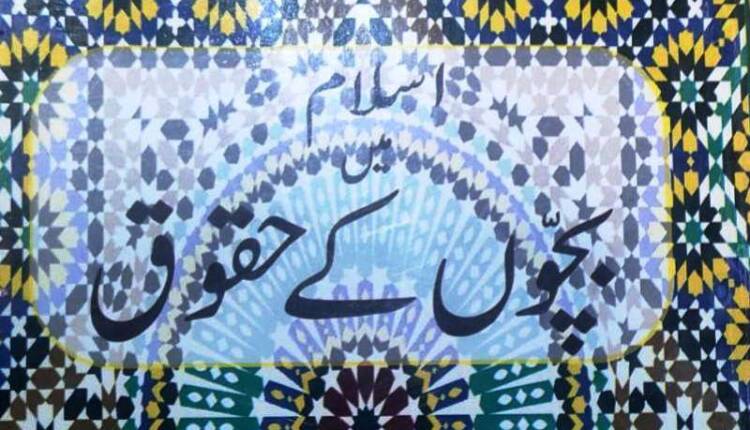 اسلام
میں
بچّوں کے حقوق